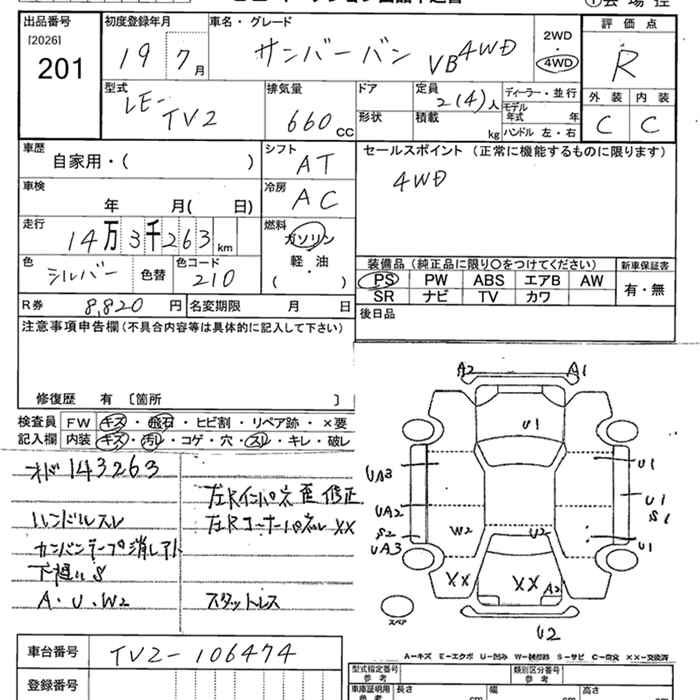 出品番号
[2026]
201
初度登録年月
19 7 月
車名・グレード
サンバーバン VB 4WD
2WD
・
4WD
評価点
R
外装 内装
C C
型式
LE-
TV2
排気量
660 CC
ドア
形状
定員
2(4)人
積載
kg
ディーラー・並行
モデル
年式 年
ハンドル 左・右
車歴
自家用・( )
シフト
AT
セールスポイント (正常に機能するものに限ります)
4WD
車検
年 月( 日)
冷房
AC
走行
14万3千263 km
燃料
ガソリン
軽・油
( )
色
シルバー
色替
色コード
210
装備品(純正品に限り〇をつけてください)
PS PW ABS エアB AW
SR ナビ TV カワ
新車保証書
有・無
R券 8,820 円
名変期限 月 日
後日品
注意事項申告欄(不具合内容等は具体的に記入して下さい)
修復歴 有 〔箇所 〕
検査員 FW キズ・飛石・ヒビ割・リペア跡・×要
記入欄 内装 キズ・汚レ・コゲ・穴・スレ・キレ・破レ
オド 143263
ハンドルスレ
カンバンテープ消しアト
下廻りS
A・U・W2
左Rインパネ歪修正
左Rコーナーパネル XX
スタットレス
A2 A1
U1
UA3 U1
UA2 U1
S1
S2 W2 U2 U1
UA3
XX XX A2
U2
スペア
A-キズ E-エクボ U-凹み W-補修跡 S-サビ C-腐食 XX-交換済
車台番号 TV2-106474
登録番号
型式指定番号
参考
類別区分番号
参考
車庫証明用
参考
長さ cm
幅 cm
高さ cm